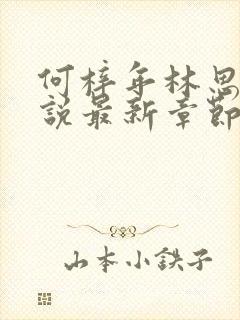 何梓年林思
説最新章節
山本小鉄子